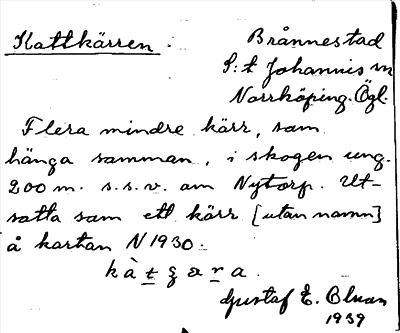 Kattkärren.
Brånnestad
S:t Johannis sn
Norrköping. Ögl.
Flera mindre kärr, som
hänga samman, i skogen ung.
200 m. s.s.v. om Nytorp. Ut-
satta som ett kärr [utan namn]
å kartan N 1930.
Gustaf E.
1939